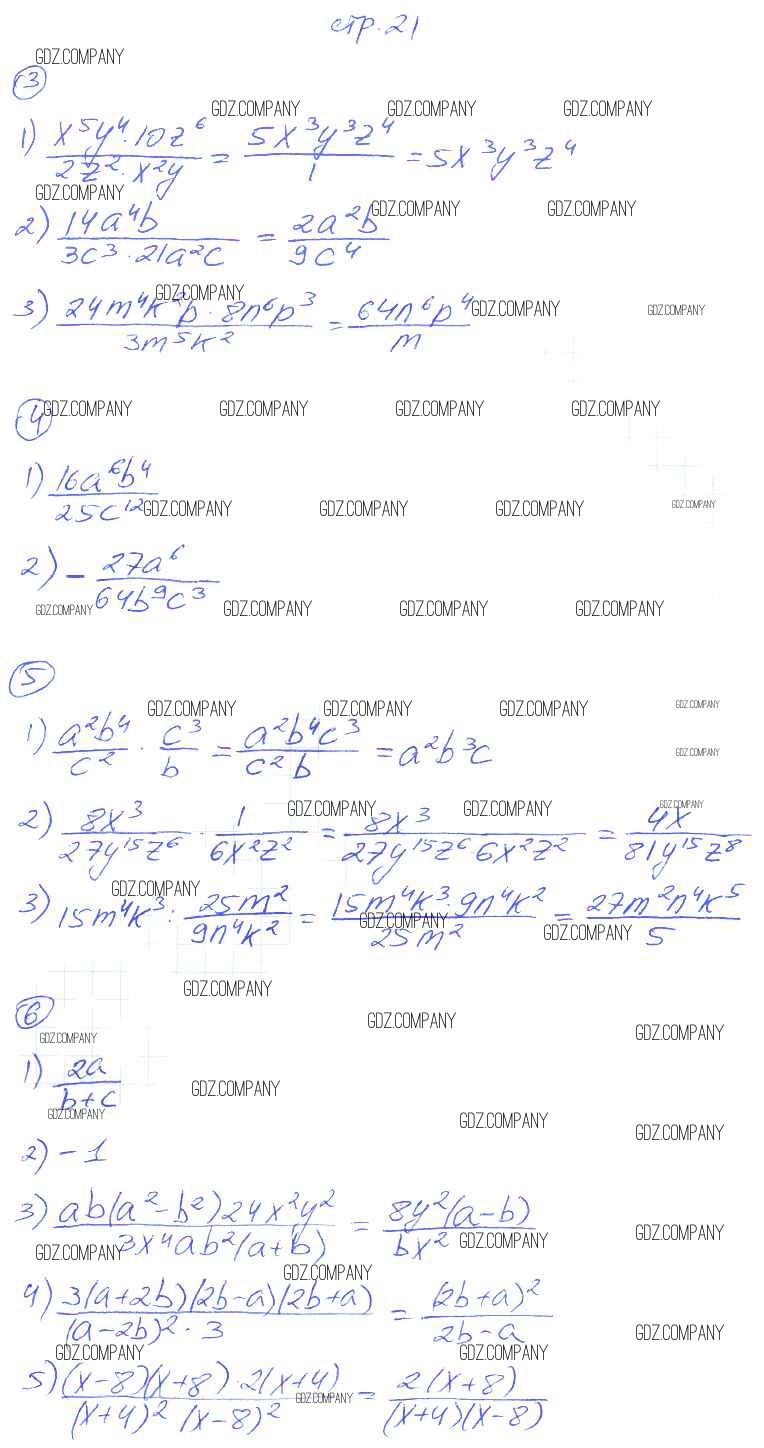 стр. 21
GDZ.COMPANY
3
GDZ.COMPANY GDZ.COMPANY GDZ.COMPANY
1) x⁵y⁴·10z⁶ / 2z²·x²y = 5x³y³z⁴ / 1 = 5x³y³z⁴
GDZ.COMPANY GDZ.COMPANY GDZ.COMPANY
2) 14a⁴b / 3c³·21a²c = 2a²b / 9c⁴
GDZ.COMPANY GDZ.COMPANY GDZ.COMPANY
3) 24m⁴k²p·8n⁶p³ / 3m⁵k² = 64n⁶p⁴ / m
4
GDZ.COMPANY GDZ.COMPANY GDZ.COMPANY GDZ.COMPANY
1) 16a⁶b⁴ / 25c¹²
GDZ.COMPANY GDZ.COMPANY GDZ.COMPANY GDZ.COMPANY
2) − 27a⁶ / 64b⁹c³
GDZ.COMPANY GDZ.COMPANY GDZ.COMPANY GDZ.COMPANY
5
GDZ.COMPANY GDZ.COMPANY GDZ.COMPANY GDZ.COMPANY
1) a²b⁴ / c² · c³ / b = a²b⁴c³ / c²b = a²b³c
GDZ.COMPANY
GDZ.COMPANY GDZ.COMPANY GDZ.COMPANY
2) 8x³ / 27y¹⁵z⁶ · 1 / 6x²z² = 8x³ / 27y¹⁵z⁶·6x²z² = 4x / 81y¹⁵z⁸
GDZ.COMPANY
3) 15m⁴k³ : 25m² / 9n⁴k² = 15m⁴k³·9n⁴k² / 25m² = 27m²n⁴k⁵ / 5
GDZ.COMPANY GDZ.COMPANY
GDZ.COMPANY
6
GDZ.COMPANY GDZ.COMPANY GDZ.COMPANY
1) 2a / b+c
GDZ.COMPANY
GDZ.COMPANY GDZ.COMPANY GDZ.COMPANY
2) −1
3) ab(a²−b²)24x²y² / 3x⁴ab²(a+b) = 8y²(a−b) / bx²
GDZ.COMPANY GDZ.COMPANY GDZ.COMPANY
GDZ.COMPANY
4) 3(a+2b)(2b−a)(2b+a) / (a−2b)²·3 = (2b+a)² / 2b−a
GDZ.COMPANY GDZ.COMPANY GDZ.COMPANY
5) (x−8)(x+8)·2(x+4) / (x+4)²(x−8)² = 2(x+8) / (x+4)(x−8)
GDZ.COMPANY